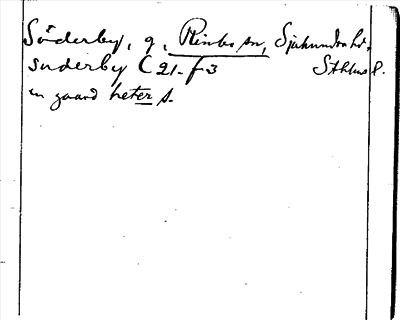 Söderby, g, Rimbo sn, Sjuhundra hd,
suderby C 21. f 3 Sthlms l.
en gaard heter s.